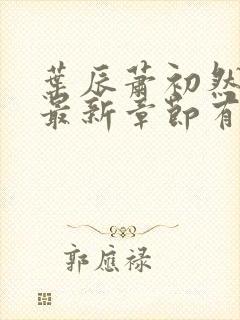 葉辰蕭初然
最新章節有
郭應祿